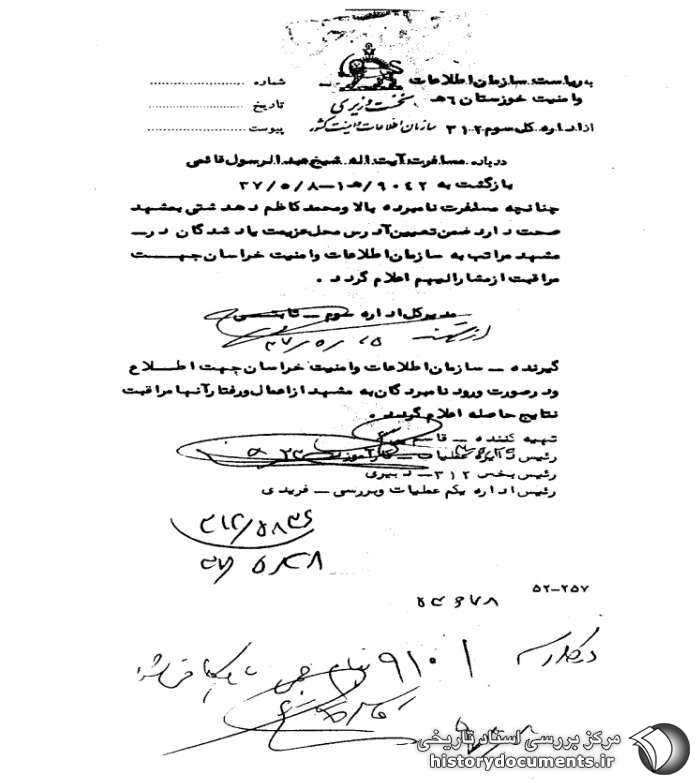 به ریاست سازمان اطلاعات
و امنیت خوزستان ۶ هـ
از اداره کل سوم ۳۱۲
نخست وزیری
سازمان اطلاعات و امنیت کشور
شماره
تاریخ
پیوست
درباره مسافرت آیت اله شیخ عبدالرسول قائمی
بازگشت به ۹۰۴۲/هـ۱-۳۷/۵/۸
چنانچه مسافرت نامبرده بالا و محمد کاظم دهدشتی بمشهد
صحت دارد ضمن تعیین آدرس محل عزیمت یاد شدگان در
مشهد مراتب به سازمان اطلاعات و امنیت خراسان جهت
مراقبت از مشارالیهم اعلام گردد .
مدیرکل اداره سوم - ثابتی
گیرنده - سازمان اطلاعات و امنیت خراسان جهت اطلاع
و در صورت ورود نامبردگان به مشهد از اعمال و رفتار آنها مراقبت
نتایج حاصله اعلام گردد .
تهیه کننده - قاسم
رئیس دایره عملیات -
رئیس بخش ۳۱۲ - دبیری
رئیس اداره یکم عملیات و بررسی - فریدی
۳۱۲/۵۸۳۶
۵۲-۲۵۷
۹۱۰۱
مرکز بررسی اسناد تاریخی
historydocuments.ir